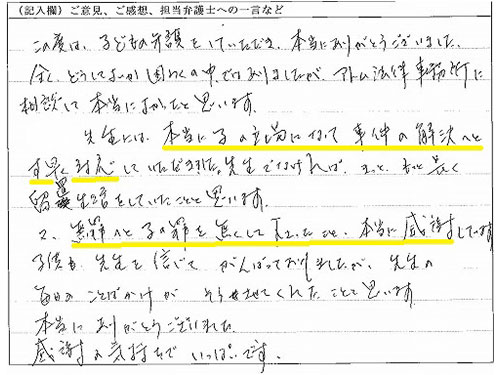 （記入欄）ご意見、ご感想、担当弁護士への一言など
この度は、子どもの弁護をしていただき、本当にありがとうございました。
全く、どうしてよいか困わくの中ではありましたが、アトム法律事務所に
相談して本当によかったと思います。
先生には、本当に子の立場になって事件の解決へと
す早く対応していただきました。先生でなければ、もっと、もっと長く
留置生活をしていたことと思います。
又、無罪へと子の罪を無くして下さったこと、本当に感謝しています
子供も、先生を信じてがんばっておりましたが、先生の
毎日のことばかけがそうさせてくれたことと思います
本当にありがとうございました
感謝の気持ちでいっぱいです。